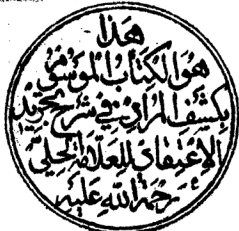 هذا
هو الكتاب الموسوم
بكشف المراد في شرح تجريد
الاعتقاد للعلامة الحلي
رحمة الله عليه